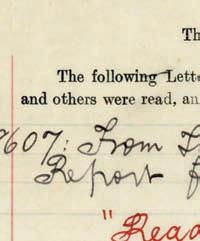 Th
The following Lett
and others were read, an
607: From
Report f
"Read